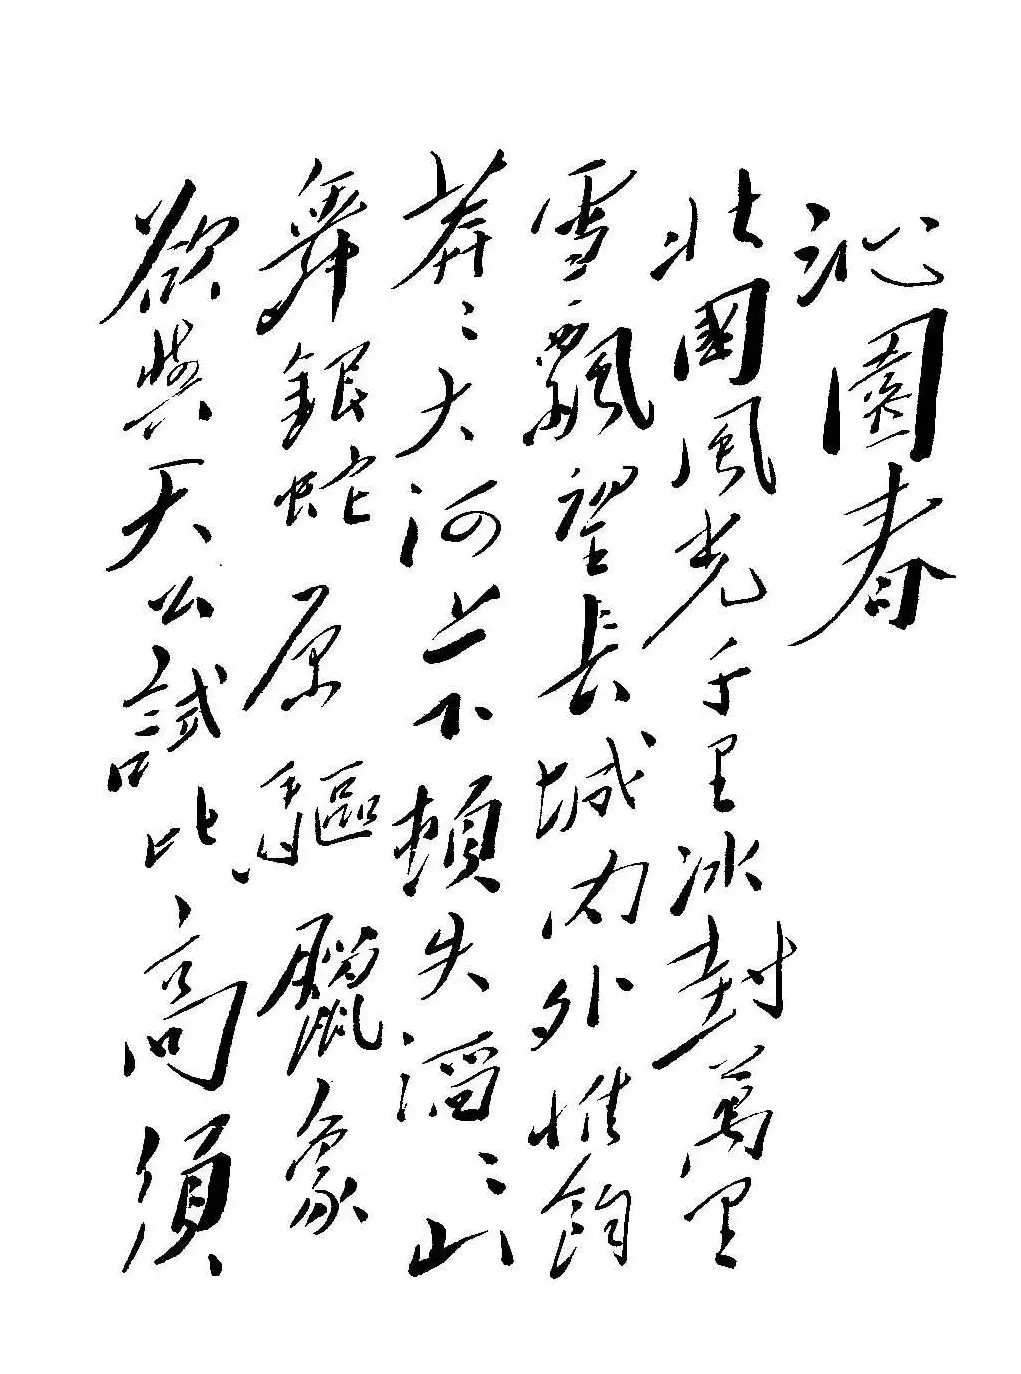 沁園春
北國風光千里冰封萬里
雪飄望長城內外惟餘
莽〻大河上下頓失滔〻山
舞銀蛇原驅臘象
欲與天公試比高須